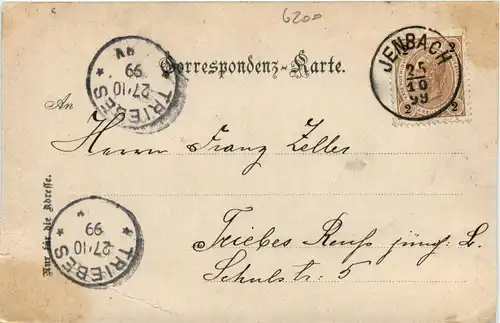 6200
Correspondenz-Karte.
JENBACH
25
10
99
2
2
2
TRIEBES
27·10
99
N
An
Herrn Franz Zeller
Triebes Reuß jüng. L.
Schulstr. 5
TRIEBES
27·10
99
Nur für die Adresse.